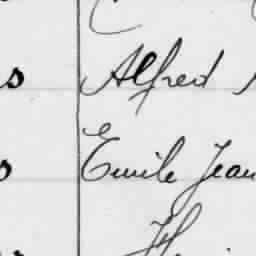 s Alfred
o Emile Jean